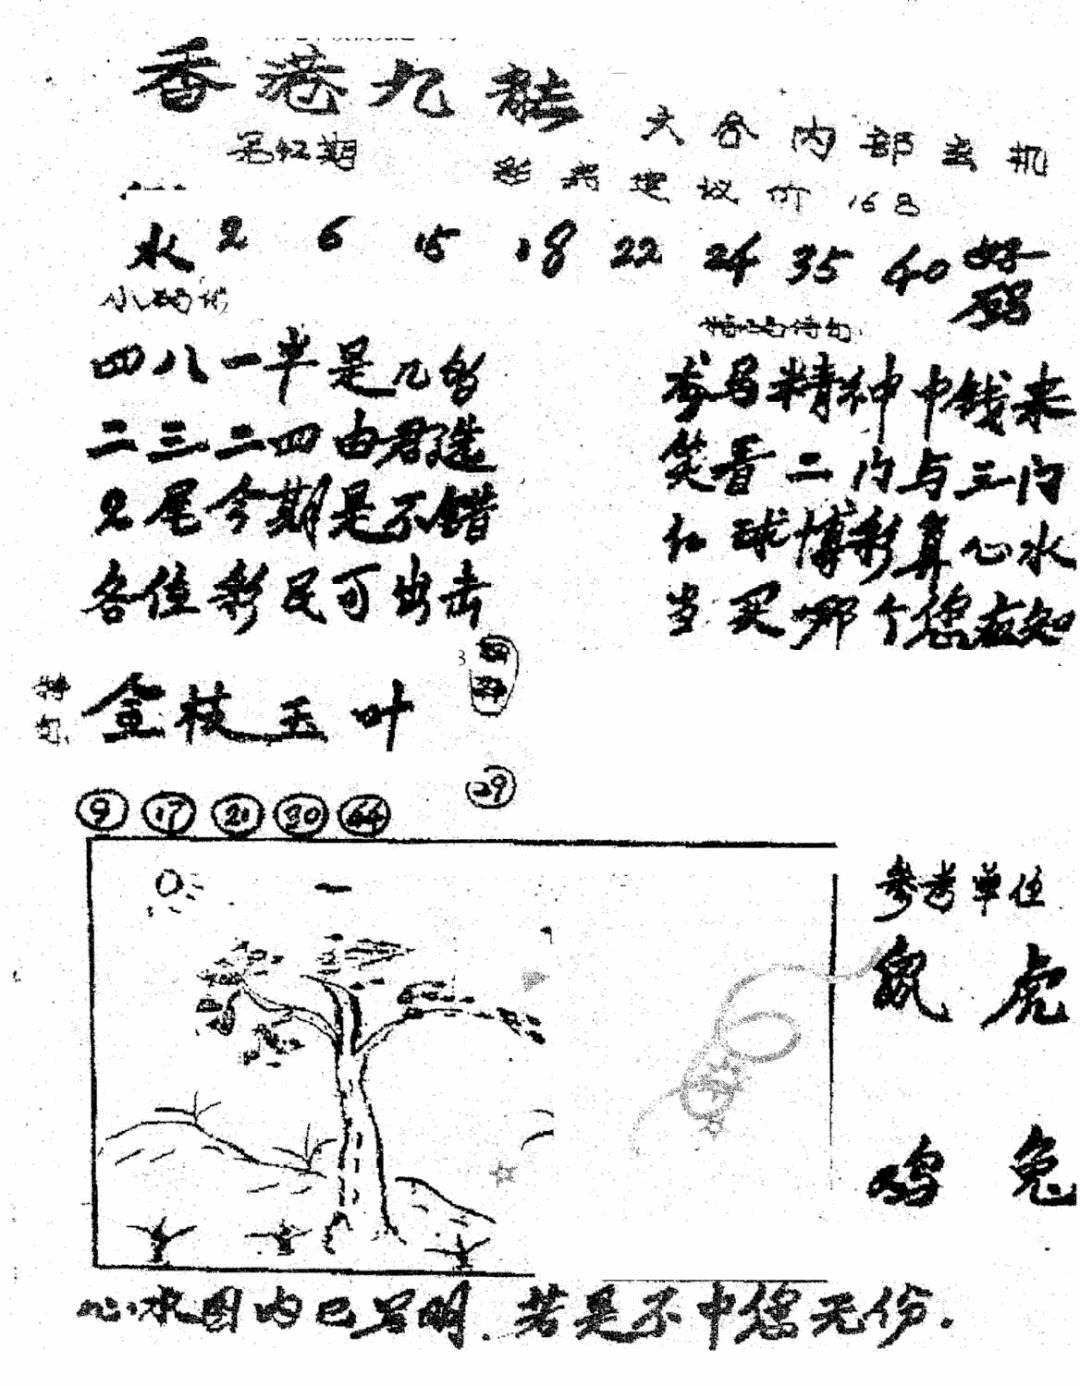 香港九龙
六合内部玄机
彩房建议价 168
水 2 6 15 18 22 24 35 40 好码
四八一半是几多
二三二四由君选
2尾今期是不错
各位彩民可出击
龙马精神中钱来
笑看二门与三门
红球博彩算心水
当买哪个您应知
特句
金枝玉叶
29
9 17 21 30 44
参考单位
鼠 虎
鸡 兔
心水图内已写明.若是不中您无份.